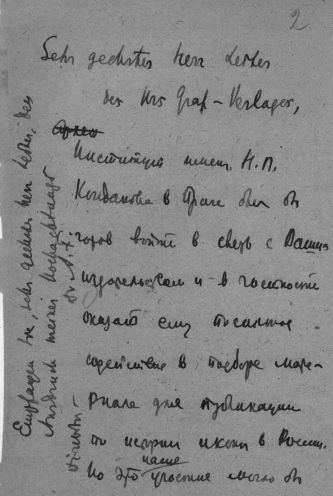 2
Sehr geehrter Herr Leiter
des Urs Graf-Verlages,
Институт имени Н.П.
Кондакова в Праге был бы
готов войти в связь с Вашим
издательством и в частности
оказать ему посильное
содействие в подборе мате-
риала для публикации
по истории иконы в России.
Но это наше участие могло бы
Empfangen Sie, sehr geehrter Herr Leiter, den
Ausdruck meiner Hochachtung